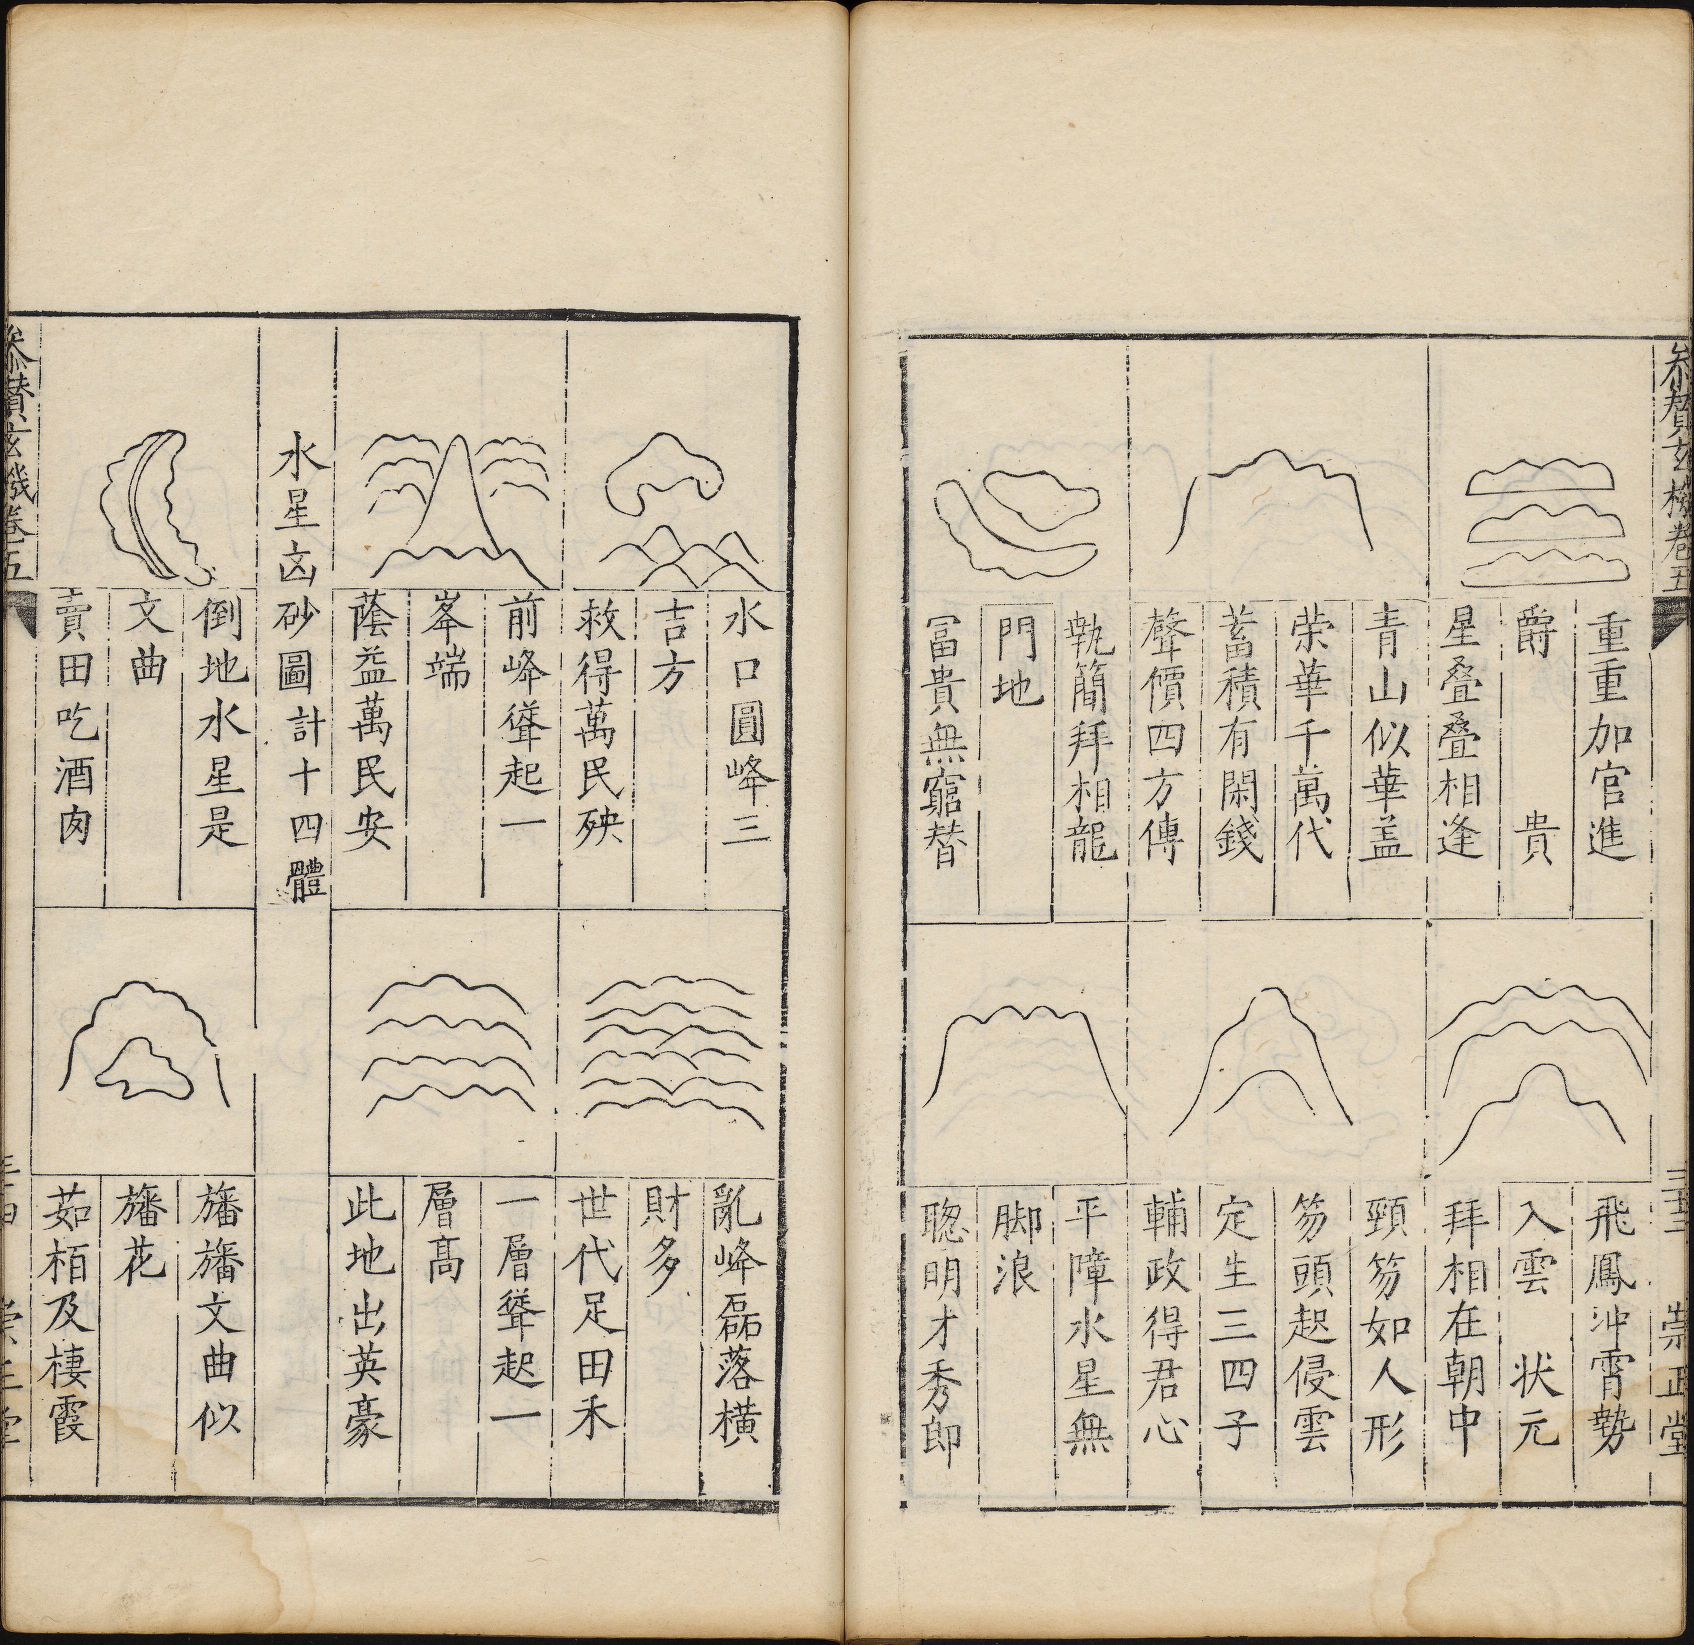 叅賛玄機卷五
崇正堂
重重加官進
爵　貴
星叠叠相逢
青山似華盖
荣華千萬代
蓄積有閑錢
聲價四方傳
執簡拜相龍
門地
冨貴無窮替
飛鳳冲霄勢
入雲　状元
拜相在朝中
頸笏如人形
笏頭起侵雲
定生三四子
輔政得君心
平障水星無
脚浪
聦明才秀郎
水口圓峰三
吉方
救得萬民殃
前峰聳起一
峯端
蔭益萬民安
亂峰磊落横
財多
世代足田禾
一層聳起一
層髙
此地出英豪
水星凶砂圖計十四體
倒地水星是
文曲
賣田吃酒肉
旛旛文曲似
旛花
茹栢及棲霞
叅賛玄機卷五